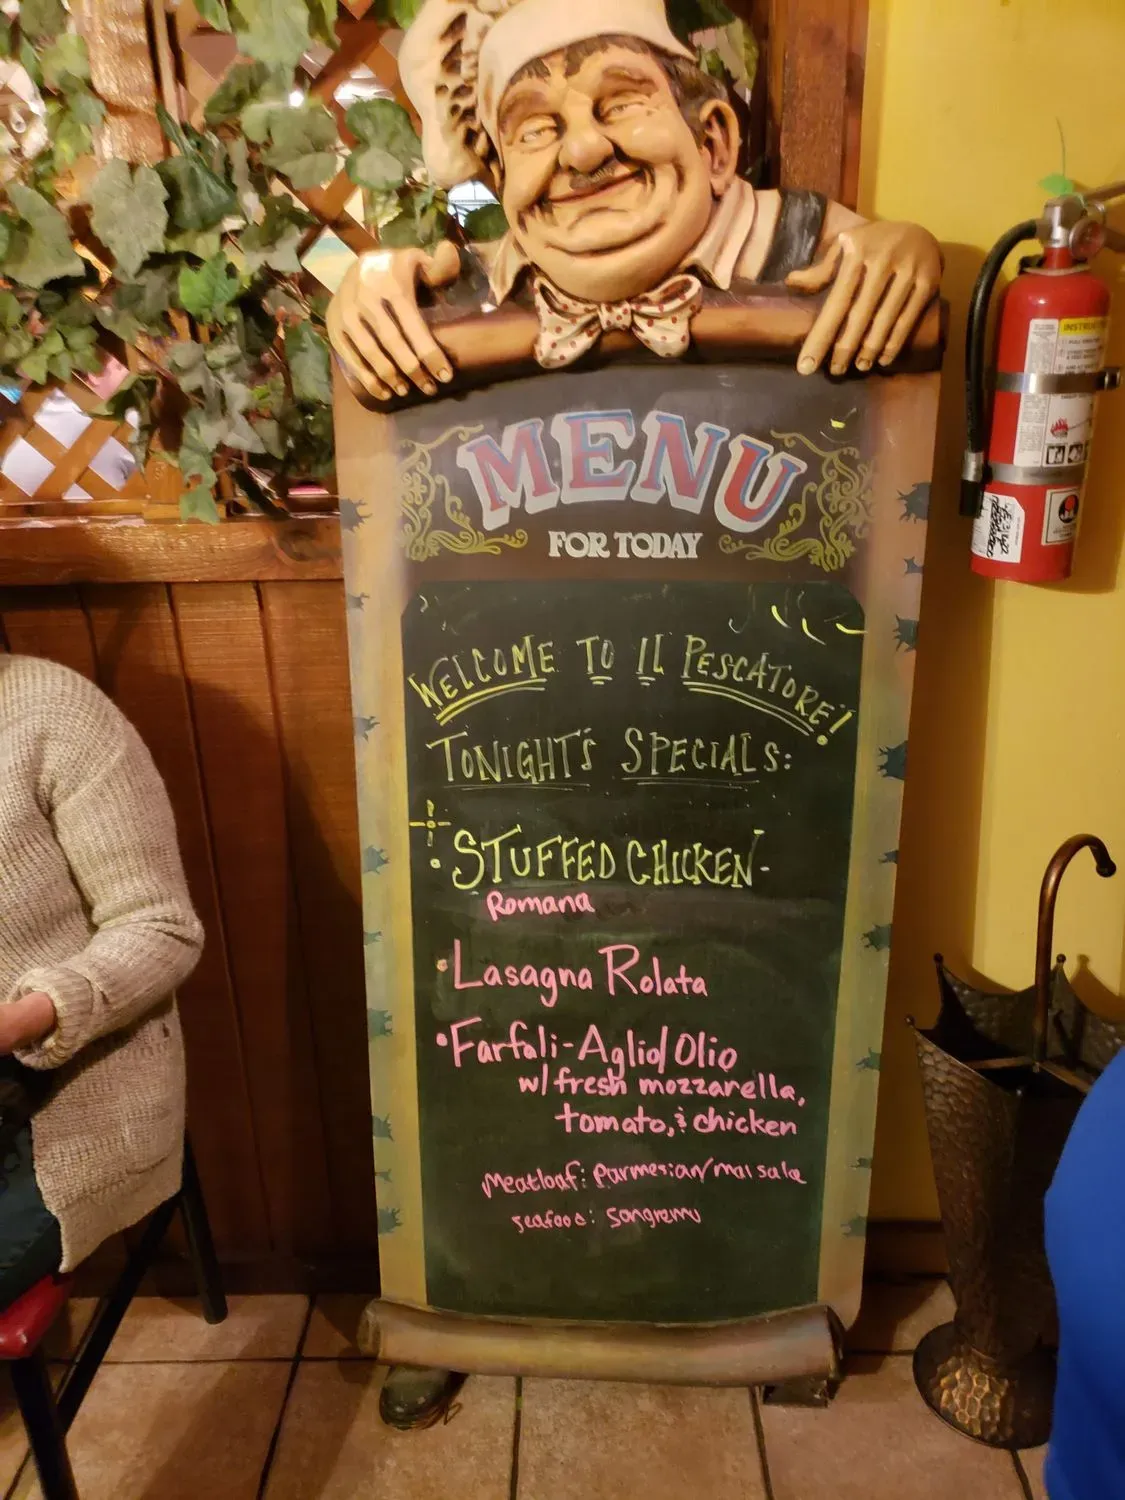 MENU
FOR TODAY
WELCOME TO IL PESCATORE!
TONIGHT'S SPECIALS:
• STUFFED CHICKEN-
Romana
• Lasagna Rolata
• Farfali-Aglio/Olio
w/ fresh mozzarella,
tomato, & chicken
meatloaf: parmesian/marsala
seafood: Sangremu
INSTRUCTIONS